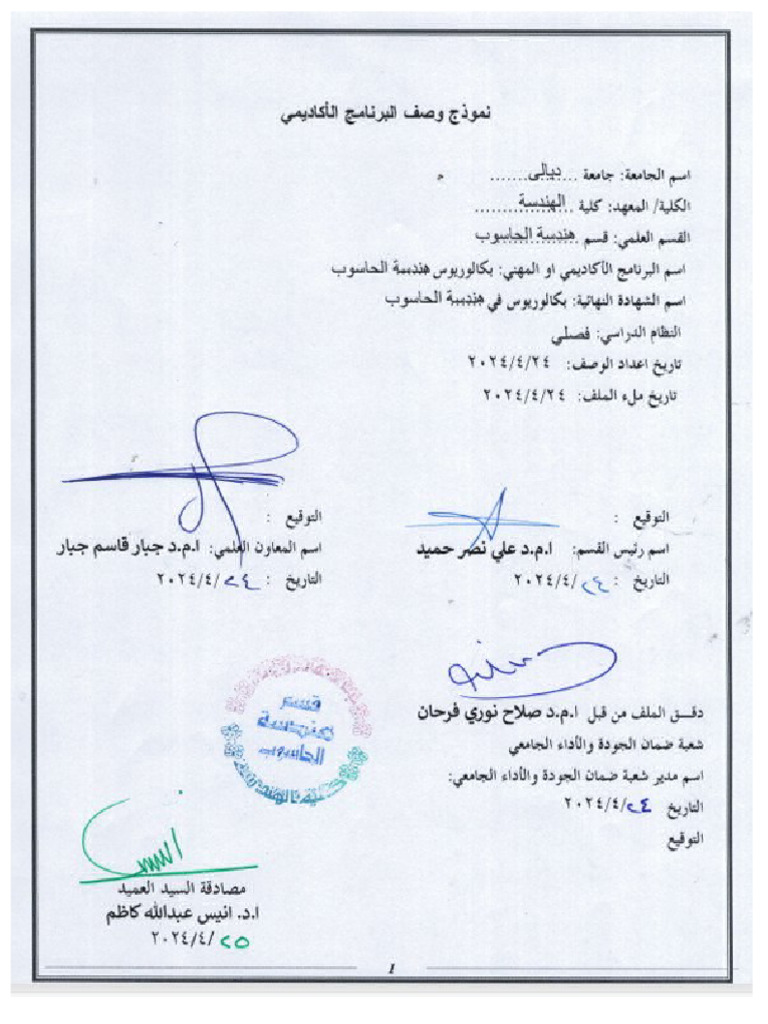 نموذج وصف البرنامج الأكاديمي
اسم الجامعة: جامعة ......ديالى...... ه
الكلية/ المعهد: كلية ......الهندسة......
القسم العلمي: قسم هندسة الحاسوب
اسم البرنامج الأكاديمي او المهني: بكالوريوس هندسة الحاسوب
اسم الشهادة النهائية: بكالوريوس في هندسة الحاسوب
النظام الدراسي: فصلي
تاريخ اعداد الوصف: ٢٠٢٤/٤/٢٤
تاريخ ملء الملف: ٢٠٢٤/٤/٢٤
التوقيع :
اسم رئيس القسم: ا.م.د علي نصر حميد
التاريخ : ٢٠٢٤/٤/٢٤
التوقيع :
اسم المعاون العلمي: ا.م.د جبار قاسم جبار
التاريخ : ٢٠٢٤/٤/٢٤
دقـق الملف من قبل ا.م.د صلاح نوري فرحان
شعبة ضمان الجودة والأداء الجامعي
اسم مدير شعبة ضمان الجودة والأداء الجامعي:
التاريخ ٢٠٢٤/٤/٢٤
التوقيع
قسم
هندسة
الحاسوب
مصادقة السيد العميد
ا.د. انيس عبدالله كاظم
٢٠٢٤/٤/٢٥
1